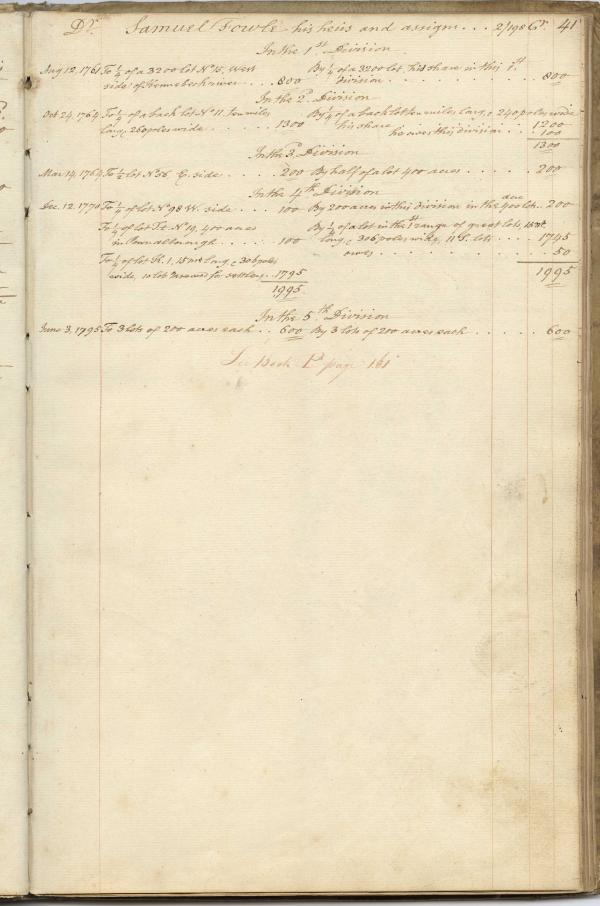 Dr. Samuel Fowle his heirs and assigns . . . 2/198 Cr. 41
In the 1st Division
Aug 12, 1761 To 1/4 of a 3200 lot No 15, West By 1/4 of a 3200 lot, his share in this 1st
side of Kennebeck river . . . 800 division . . . . . . . . . . 800
In the 2d Division
Oct 24, 1764 To 1/4 of a back lot No 11, ten miles By 1/4 of a back lot ten miles long, & 240 poles wide
long, 260 poles wide . . . . . 1300 his share . . . . . . 1200
he owes this division . . . 100
1300
In the 3d Division
Mar 14, 1764 To 1/2 lot No 56, E. side . . . . 200 By half of a lot 400 acres . . . . . 200
In the 4th Division
Dec. 12, 1770 To 1/4 of lot No 98 W. side . . . . 100 By 200 acres in this division in the 400 acre lots . . 200
To 1/4 of lot Lt. No 19, 400 acres By 1/4 of a lot in the 1st range of great lots, 15 ml.
in Pownalborough . . . . . 100 long, & 306 poles wide, 11 S. lots . . . . 1745
To 1/4 of lot K. 1, 15 ml long, & 306 poles owes . . . . . . . . . 50
wide, 10 lots reserved for settlers . . 1795 1995
1995
In the 5th Division
June 3, 1795 To 3 lots of 200 acres each . . 600 By 3 lots of 200 acres each . . . . . 600
See Book 1st page 161